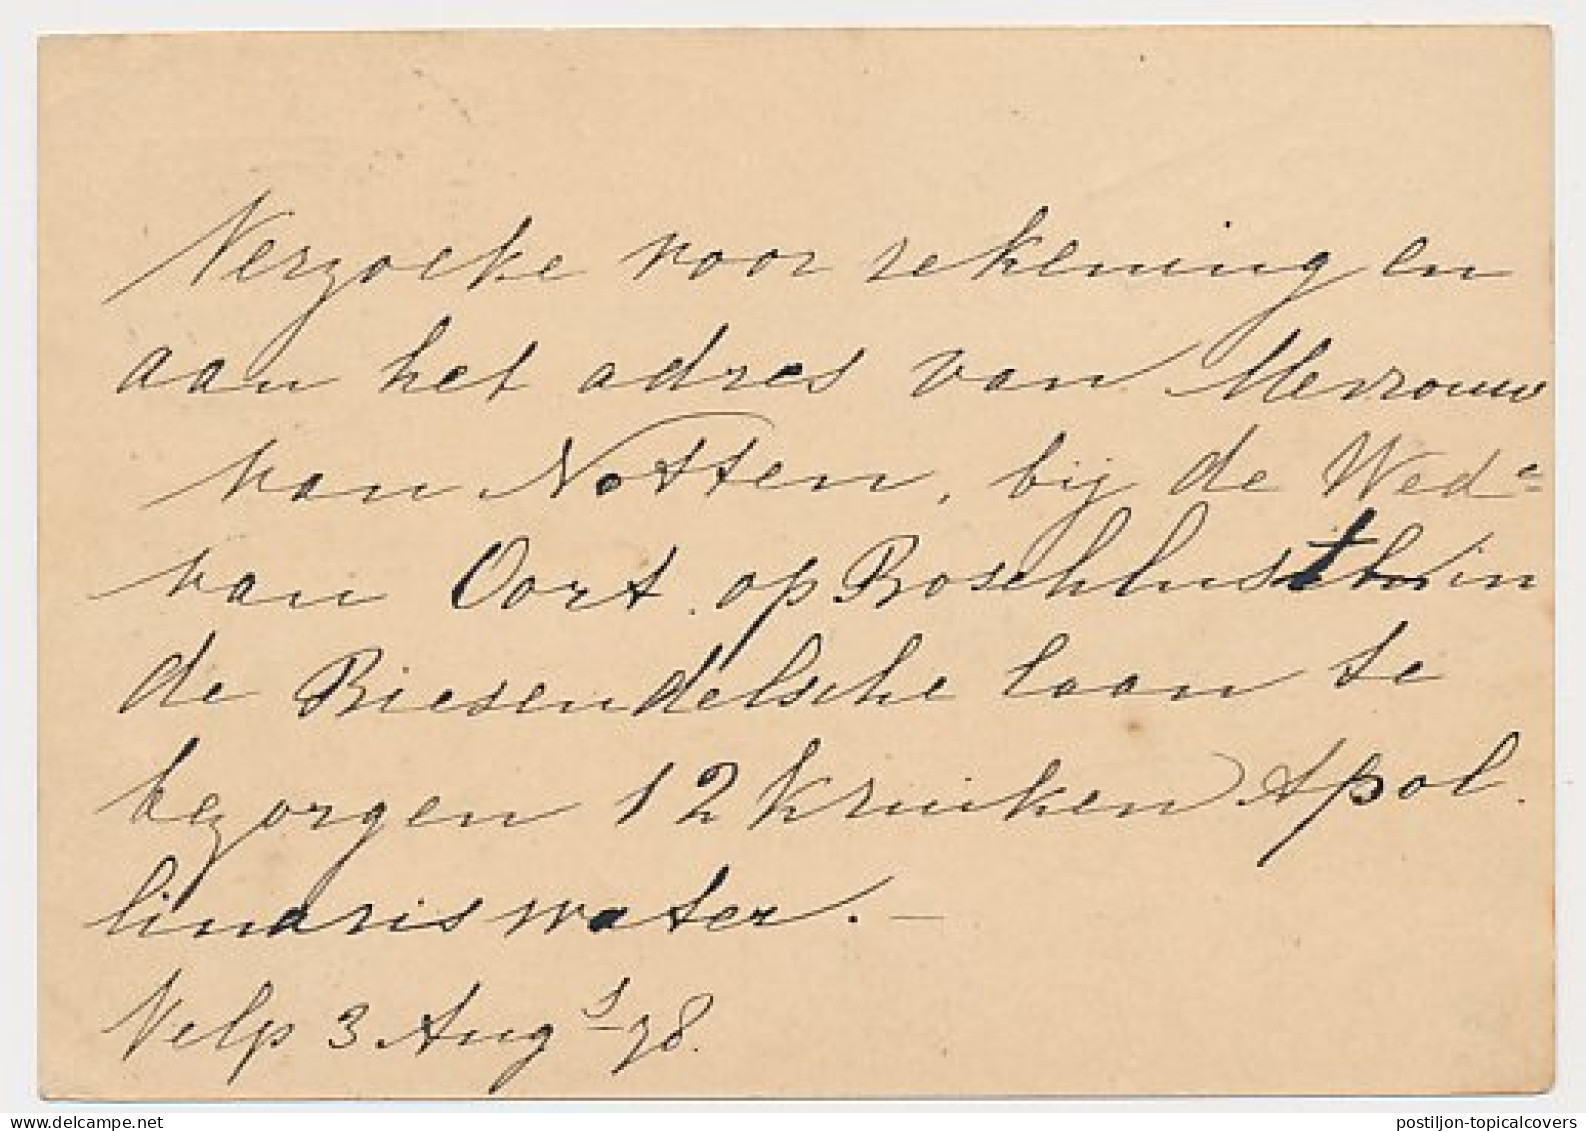 Verzoeke voor rekening en
aan het adres van Mevrouw
van Notten, bij de Wed.e
van Oort op Boschlust in
de Biesendelsche laan te
bezorgen 12 kruiken Apol
linariswater. —
Velp 3 Aug.s 78.
postiljon-topicalcovers